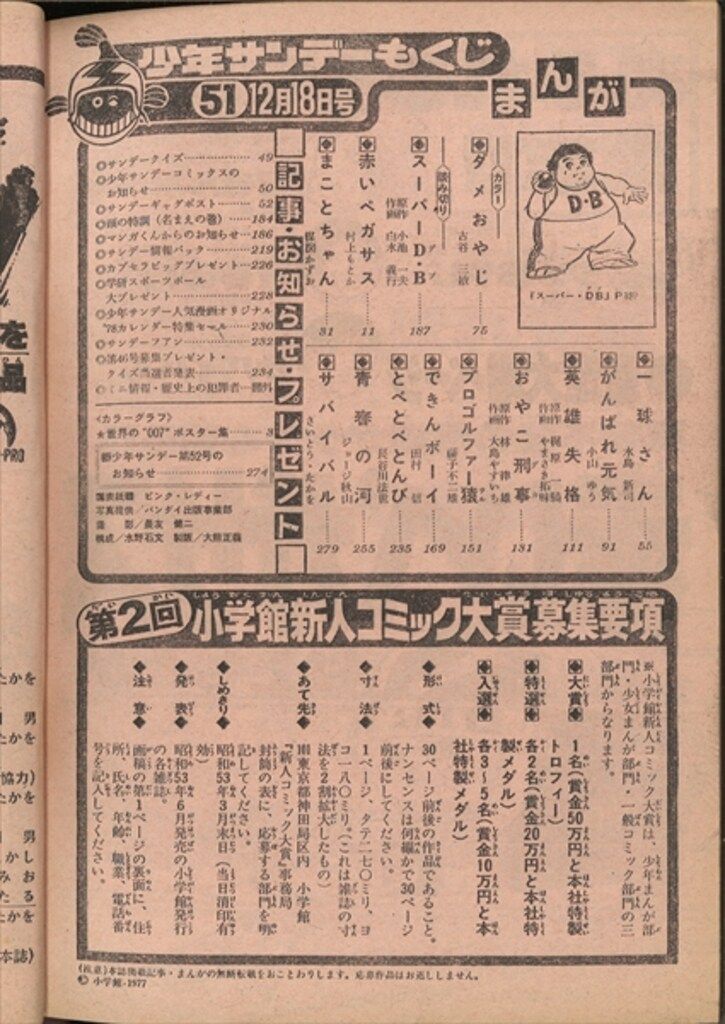 少年サンデーもくじ
51 12月18日号
まんが
「スーパー・DB」P187
D・B
カラー
ダメおやじ
古谷三敏
75
読み切り
スーパーD・B
原作 小池一夫
作画 白水義行
187
赤いペガサス
村上もとか
11
まことちゃん
楳図かずお
31
一球さん
水島新司
55
がんばれ元気
小山ゆう
91
英雄失格
原作 梶原一騎
作画 やまさき拓味
111
おやこ刑事
原作 林律雄
作画 大島やすいち
131
プロゴルファー猿
藤子不二雄
151
できんボーイ
田村信
169
とべとべとんび
長谷川法世
235
青春の河
ジョージ秋山
255
サバイバル
さいとう・たかを
279
記事・お知らせ・プレゼント
◎サンデークイズ 49
◎少年サンデーコミックスの
お知らせ 50
◎サンデーギャグポスト 52
◎頭の特訓(名まえの巻) 184
◎マンガくんからのお知らせ 186
◎サンデー情報パック 219
◎カプセラビッグプレゼント 226
◎学研スポーツボール
大プレゼント 228
◎少年サンデー人気漫画オリジナル
'78カレンダー特集セール 230
◎サンデーファン 232
◎第46号募集プレゼント・
クイズ当選者発表 234
◎ミニ情報・歴史上の犯罪者 欄外
〈カラーグラフ〉
★世界の"007"ポスター集 3
少年サンデー第52号の
お知らせ 274
表紙 ピンク・レディー
写真提供/バンダイ出版事業部
構成/水野石文 製版/大熊正義
第2回 小学館新人コミック大賞募集要項
※小学館新人コミック大賞は、少年まんが部
門・少女まんが部門・一般コミック部門の三
部門からなります。
◆大賞◆ 1名(賞金50万円と本社特製
トロフィー)
◆特選◆ 各2名(賞金20万円と本社特
製メダル)
◆入選◆ 各3~5名(賞金10万円と本
社特製メダル)
◆形式◆ 30ページ前後の作品であること。
ナンセンスは何編かで30ページ
前後にしてください。
◆寸法◆ 1ページ、タテ二七〇ミリ、ヨ
コ一八〇ミリ。(これは雑誌の寸
法を2割拡大したもの)
◆あて先◆ 東京都神田局区内 小学館
『新人コミック大賞』事務局
封筒の表に、応募する部門を明
記してください。
◆しめきり◆ 昭和53年3月末日(当日消印有
効)
◆発表◆ 昭和53年6月発売の小学館発行
の各雑誌。
◆注意◆ 画稿の第1ページの裏面に、住
所、氏名、年齢、職業、電話番
号を記入してください。
(注意)本誌掲載記事・まんがの無断転載をおことわりします。応募作品はお返ししません。
© 小学館・1977